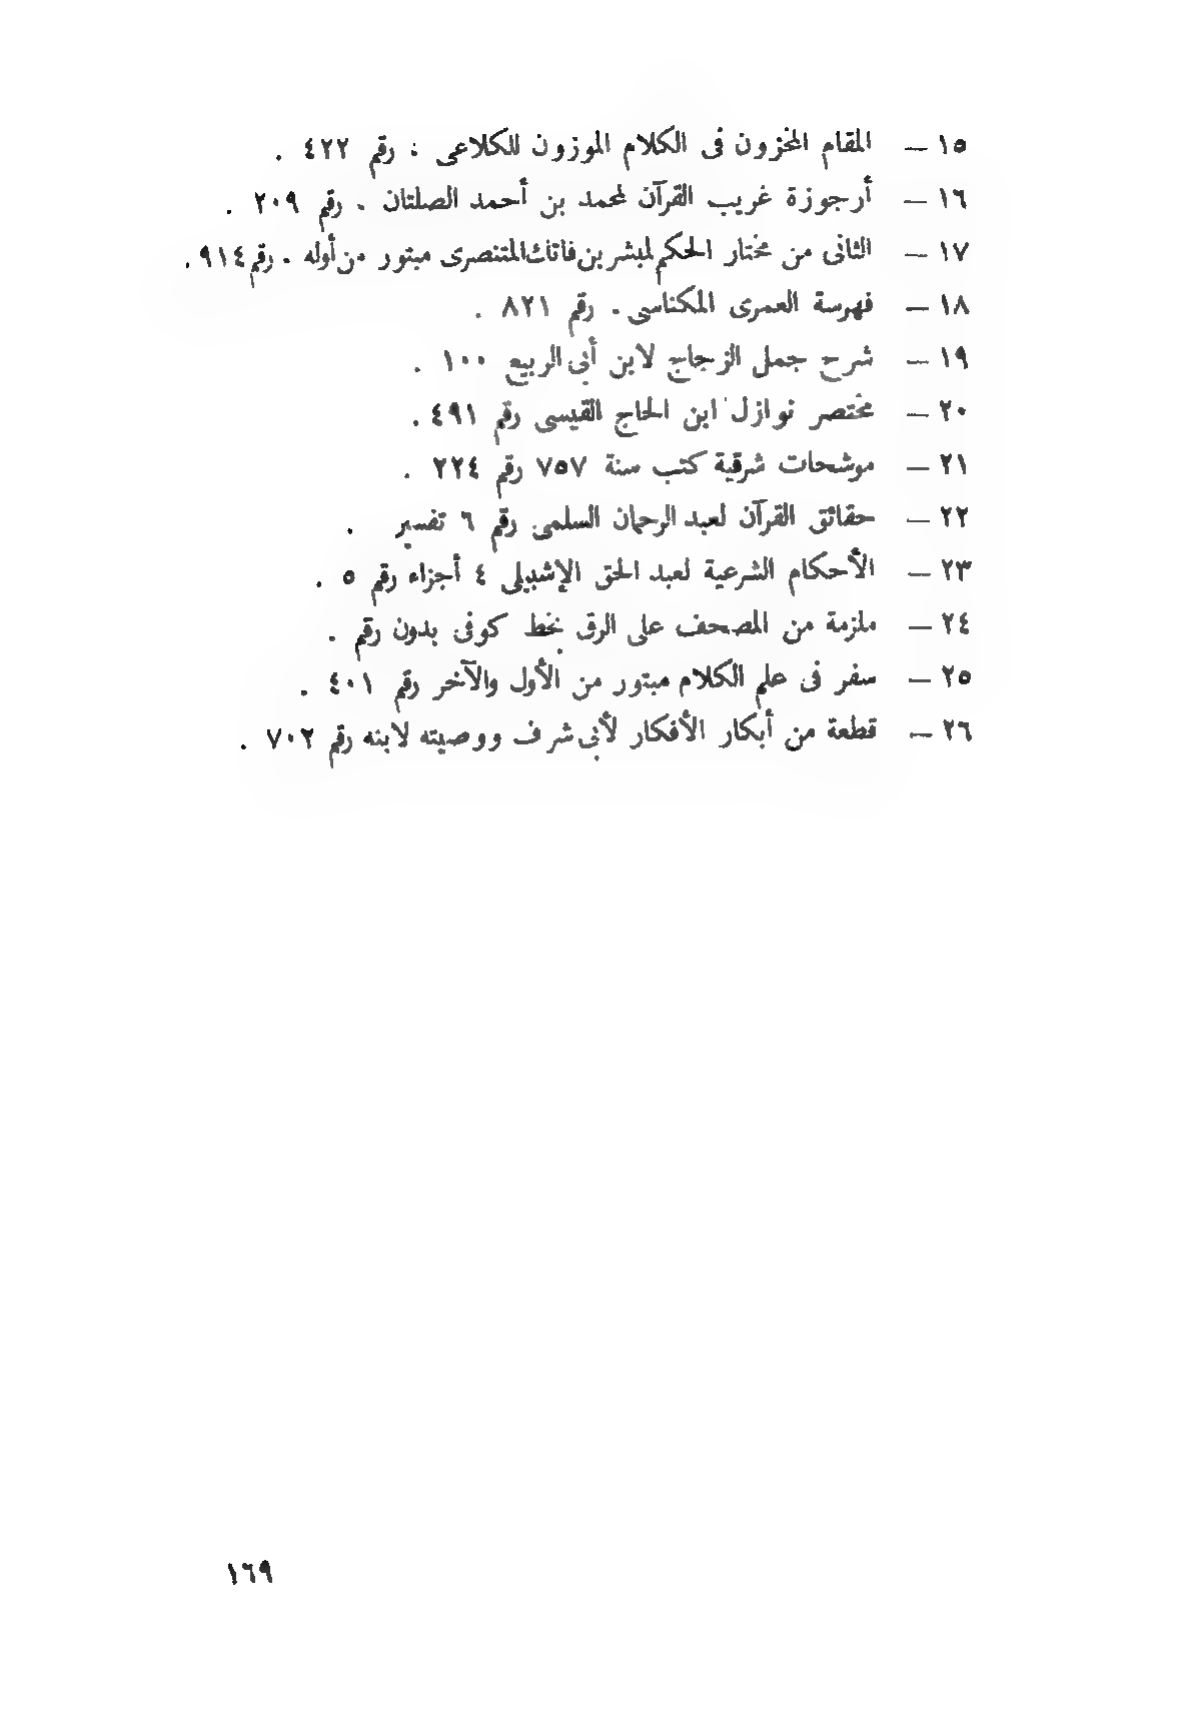 ١٥ – المقام المخزون فى الكلام الموزون للكلاعى ؛ رقم ٤٢٢ .
١٦ – أرجوزة غريب القرآن لمحمد بن أحمد الصلتان . رقم ٢٠٩ .
١٧ – الثانى من مختار الحكم لمبشر بن فاتك المتنصرى مبتور من أوله . رقم ٩١٤ .
١٨ – فهرسة العمرى المكناسى . رقم ٨٢١ .
١٩ – شرح جمل الزجاج لابن أبى الربيع ١٠٠ .
٢٠ – مختصر نوازل ابن الحاج القيسى رقم ٤٩١ .
٢١ – موشحات شرقية كتب سنة ٧٥٧ رقم ٢٢٤ .
٢٢ – حقائق القرآن لعبد الرحمان السلمى رقم ٦ تفسير .
٢٣ – الأحكام الشرعية لعبد الحق الإشبيلى ٤ أجزاء رقم ٥ .
٢٤ – ملزمة من المصحف على الرق بخط كوفى بدون رقم .
٢٥ – سفر فى علم الكلام مبتور من الأول والآخر رقم ٤٠١ .
٢٦ – قطعة من أبكار الأفكار لأبى شرف ووصيته لابنه رقم ٧٠٢ .
١٦٩